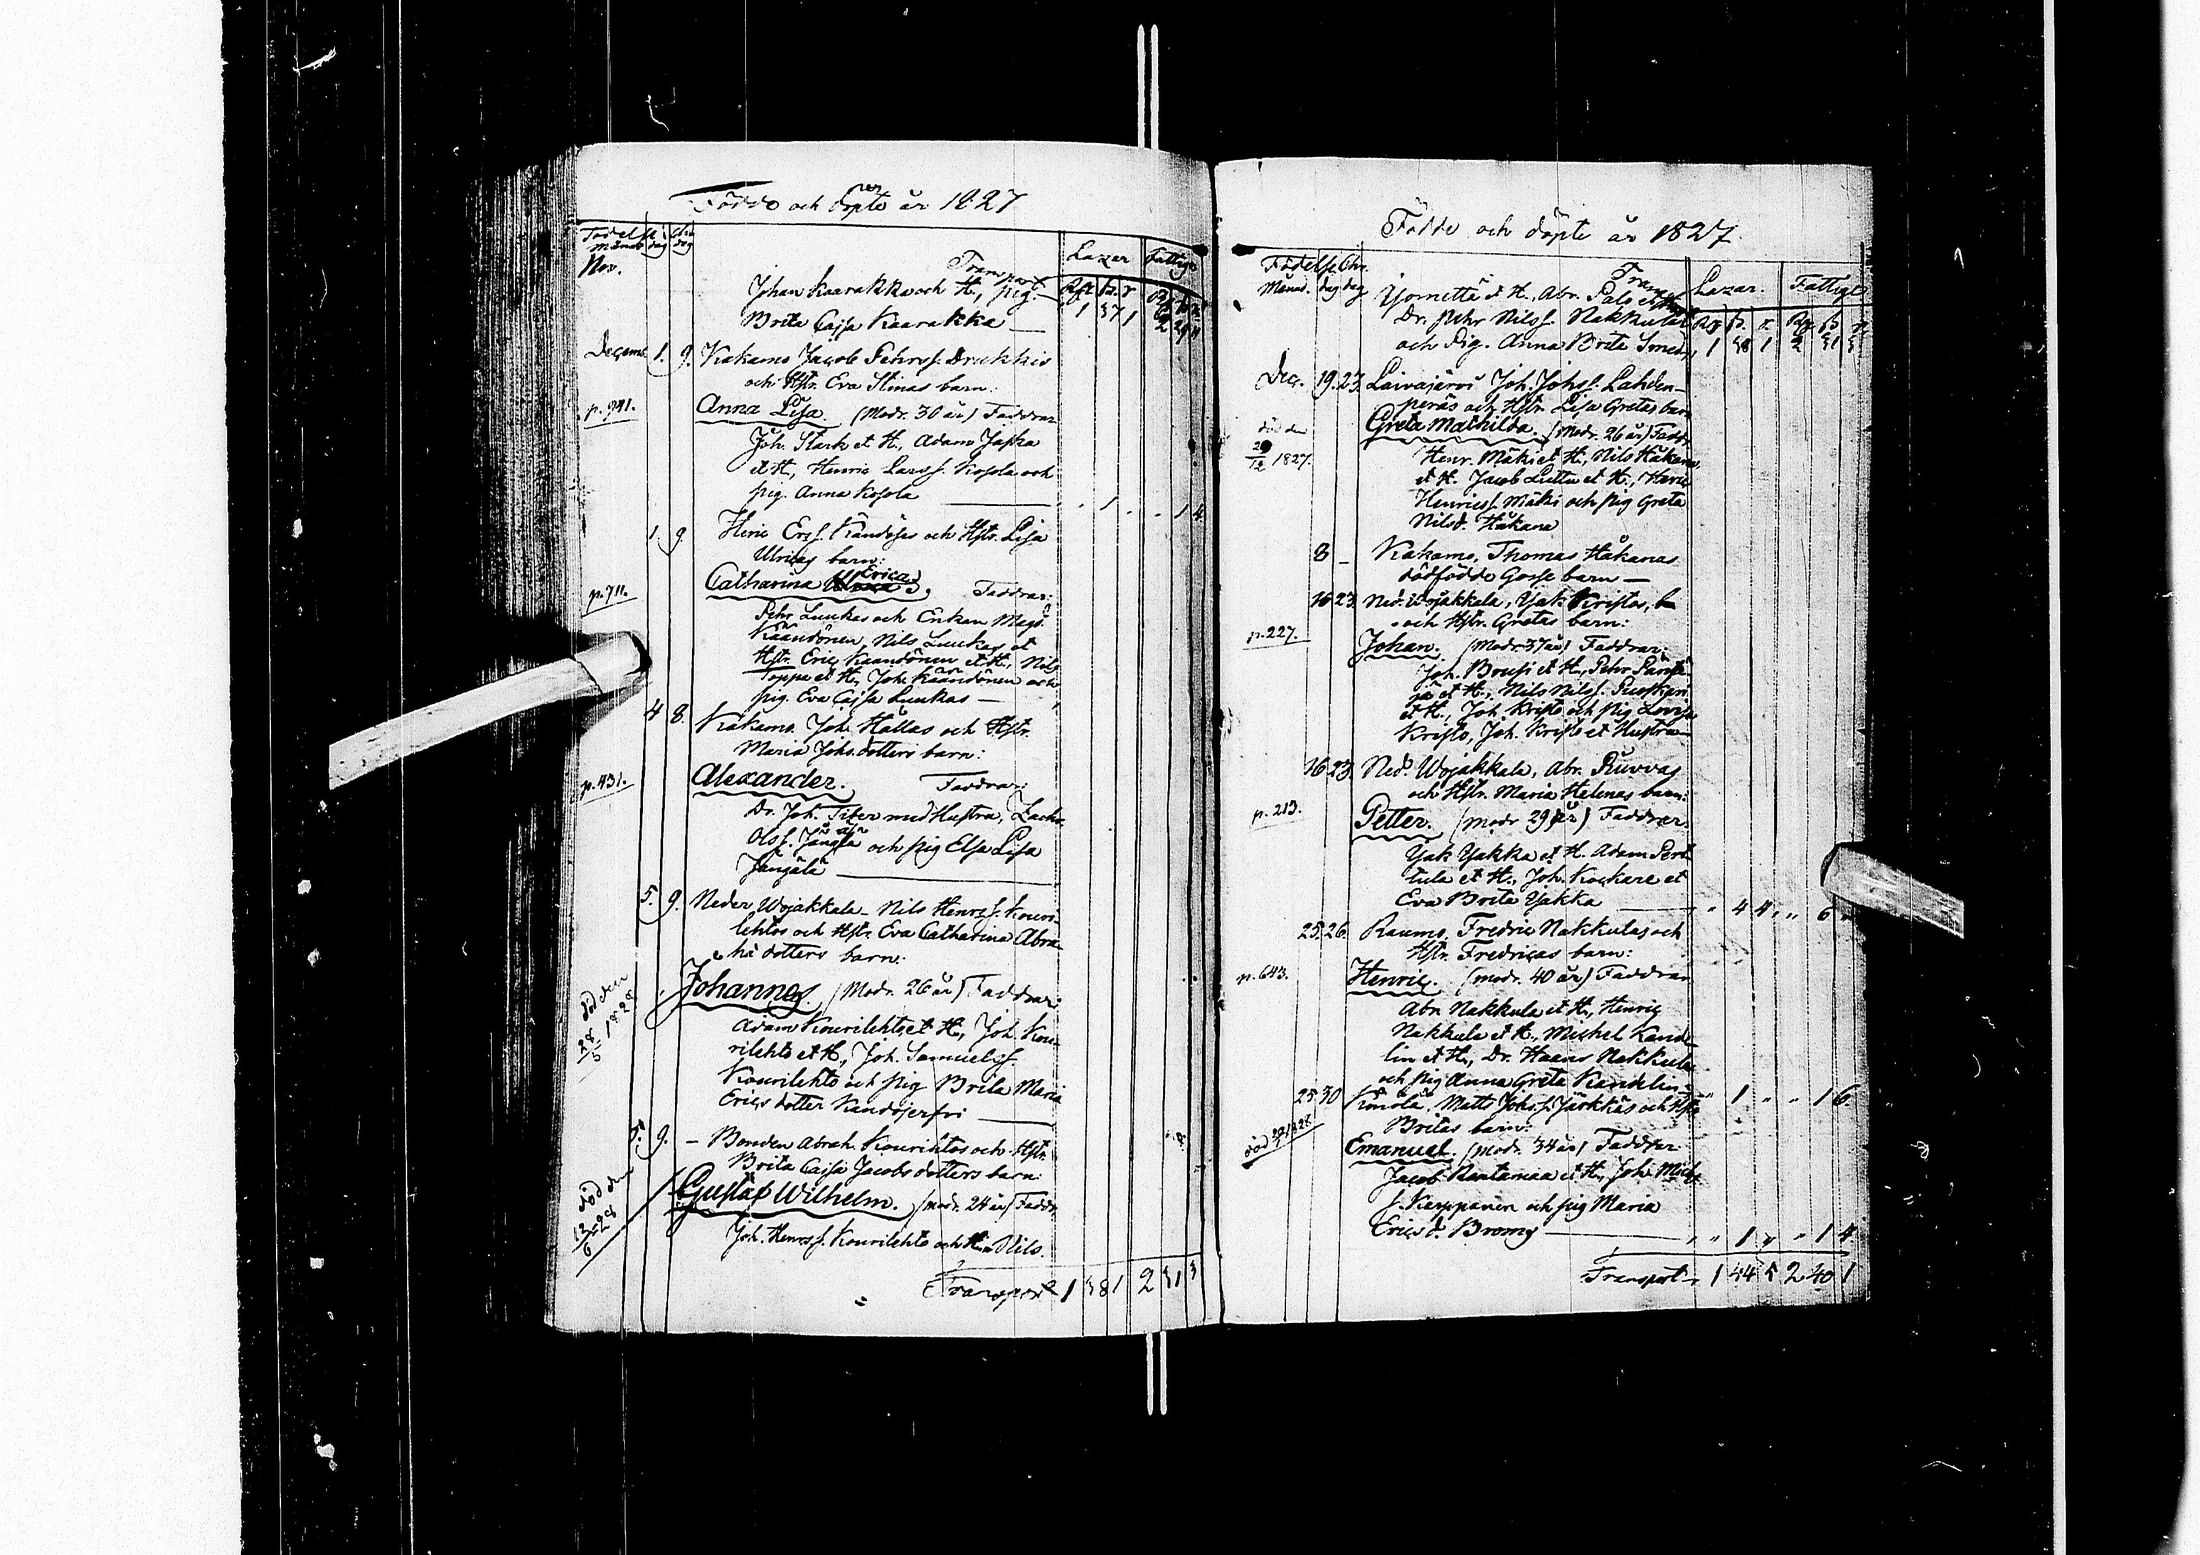 Födde och döpte år 1827
Födelse Chr.
Månad dag dag
Lazar Fattige
Nov.
Transport
Johan Kaarakka och H., pig.
Brita Cajsa Kaarakka
Decemb. 1. 9. Kakamo Jacob Pehrs s. Drukkis
och Hstr. Eva Stinas barn:
p. 941. Anna Lisa. (Modr. 30 år) Faddrar
Joh. Stark et H., Adam Japka
et H., Henric Lars s. Kosola och
pig. Anna Kosola 1 1 4
1. 9. Henric Ers s. Kandojas och Hstr. Lisa
Ulricas barn:
p. 711. Catharina Erica. Faddrar:
Pehr Luukas och Enkan Mags.
Kaandönen, Nils Luukas et
Hstr. Eric Kaandönen et H., Nils
Toppa et H., Joh. Kaandönen och
pig. Eva Cajsa Luukas
4 8. Kakamo Joh. Hallas och Hstr.
Maria Johs dotters barn:
p. 431. Alexander. Faddrar:
Dr. Joh. Titer med Hustru, Zachr.
Ols s. och pig Elsa Lisa
Jängälä
5. 9. Neder Wojakkala Nils Henrs s. Kouri-
lehtos och Hstr. Eva Catharina Abra-
ha dotters barn:
död den 28/5 1828 Johannes. (Modr. 26 år) Faddrar:
Adam Kourilehto et H., Joh. Kou-
rilehto et H., Joh. Samuels s.
Kourilehto och pig Brita Maria
Erics dotter Kandojerfvi
5. 9. – Bonden Abrah. Kourihtos och Hstr.
Brita Cajsa Jacobs dotters barn:
död den 13/6 28 Gustaf Wilhelm. (modr. 24 år) Faddr.
Joh. Henrs s. Kourilehto och H. Nils.
Transport 1 38 1 2 31 3
Födde och döpte år 1827
Födelse Chr.
Månad. dag dag
Lazar. Fattige
Transport
Yornetta et H., Abr. Palo et H.
Dr. Pehr Nils s. Nakkula
och Pig. Anna Brita Smeds 1 38 1 2 31 3
Dec. 19. 23. Laivajärvi Joh. Johs s. Lahden-
peräs och Hstr. Lisa Gretas barn
död den 29/12 1827. Greta Mathilda. (Modr. 26 år) Faddr.
Henr. Mäki et H., Nils Håkana
et H. Jacob Luttu et H., Henric
Henrics s. Mäki och pig Greta
Nilsd. Håkana
8 – Kakamo, Thomas Håkanas
dödfödde Gosse barn –
16 23. Ned. Wojakkala, Yak Kristos,
och Hstr. Gretas barn:
p. 227. Johan. (Modr. 37 år) Faddrar:
Joh. Brusi et H., Pehr
et H., Nils Nils s.
et H., Joh. Kristo och pig Lovisa
Kristo, Joh. Kristo et Hustru
16 23. Ned. Wojakkala, Abr. Ruvvas
och Hstr. Maria Helenas barn:
p. 213. Petter. (modr 29 år) Faddrar:
Yak Yakka et H. Adam Pert-
tula et H., Joh. Kockare et
Eva Brita Yakka 4 4 6
25. 26. Raumo, Fredric Nakkulas och
Hstr. Fredricas barn:
p. 643. Henric. (modr. 40 år) Faddrar
Abr. Nakkula et H., Henric
Nakkula et H., Michel Kande-
lin et H., Dr. Haans Nakkula
och pig Anna Greta Kandelin 1 1 6.
25 30 Könölä, Matts Johs s. Järkkäs och Hstr.
Britas barn:
Emanuel. (modr. 34 år) Faddrar
Jacob Rantamaa et H., Joh. Michs
s. Karppanen och pig Maria
Erics d. Bromg 1 1 4.
Transport 1 44 5 2 40 1